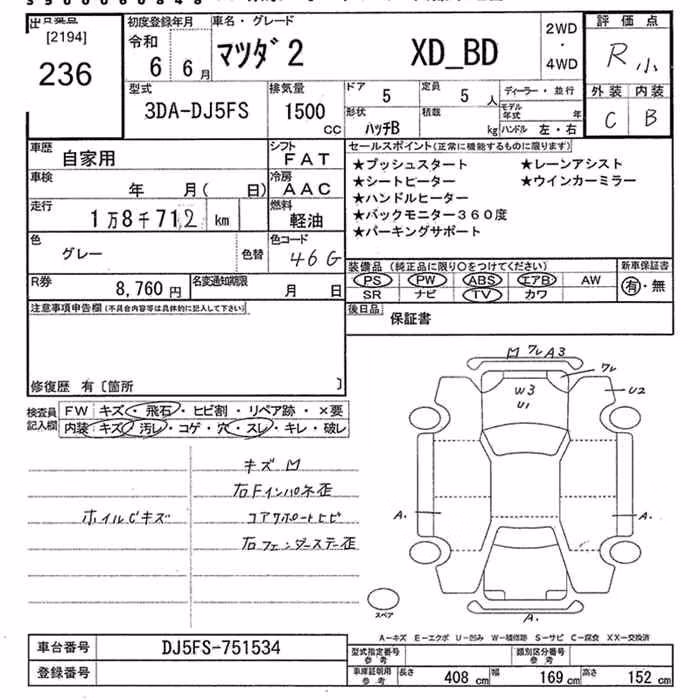 出品票 初度登録年月 車名・グレード 2WD 評価点
[2194] 令和 ・ R 小
236 6 6月 マツダ2 XD_BD 4WD
型式 排気量 ドア 定員 ディーラー・並行 外装 内装
3DA-DJ5FS 1500 cc 5 5 人 モデル年式 年 C B
形状 積載
ハッチB kg ハンドル 左・右
車歴 自家用 シフト FAT セールスポイント(正常に機能するものに限ります)
車検 年 月( 日) 冷房 AAC ★プッシュスタート ★レーンアシスト
走行 1万8千712 km 燃料 軽油 ★シートヒーター ★ウインカーミラー
★ハンドルヒーター
★バックモニター360度
★パーキングサポート
色 グレー 色替 色コード 46G
装備品(純正品に限り○をつけてください) 新車保証書
R券 8,760 円 名変通知期限 月 日 PS PW ABS エアB AW 有・無
SR ナビ TV カワ
注意事項申告欄(不具合内容等は具体的に記入して下さい) 後日品 保証書
修復歴 有〔箇所 〕
M ワレ A3
ワレ
W3
U1
U2
A. A.
A.
スペア
検査員記入欄 FW キズ・飛石・ヒビ割・リペア跡・×要
内装 キズ・汚レ・コゲ・穴・スレ・キレ・破レ
キズ M
右Fインパネ歪
ホイルCキズ コアサポートヒビ
右フェンダーステー歪
A―キズ E―エクボ U―凹み W―補修跡 S―サビ C―腐食 XX―交換済
車台番号 DJ5FS-751534 型式指定番号 参考 類別区分番号 参考
登録番号 車庫証明用 参考 長さ 408 cm 幅 169 cm 高さ 152 cm